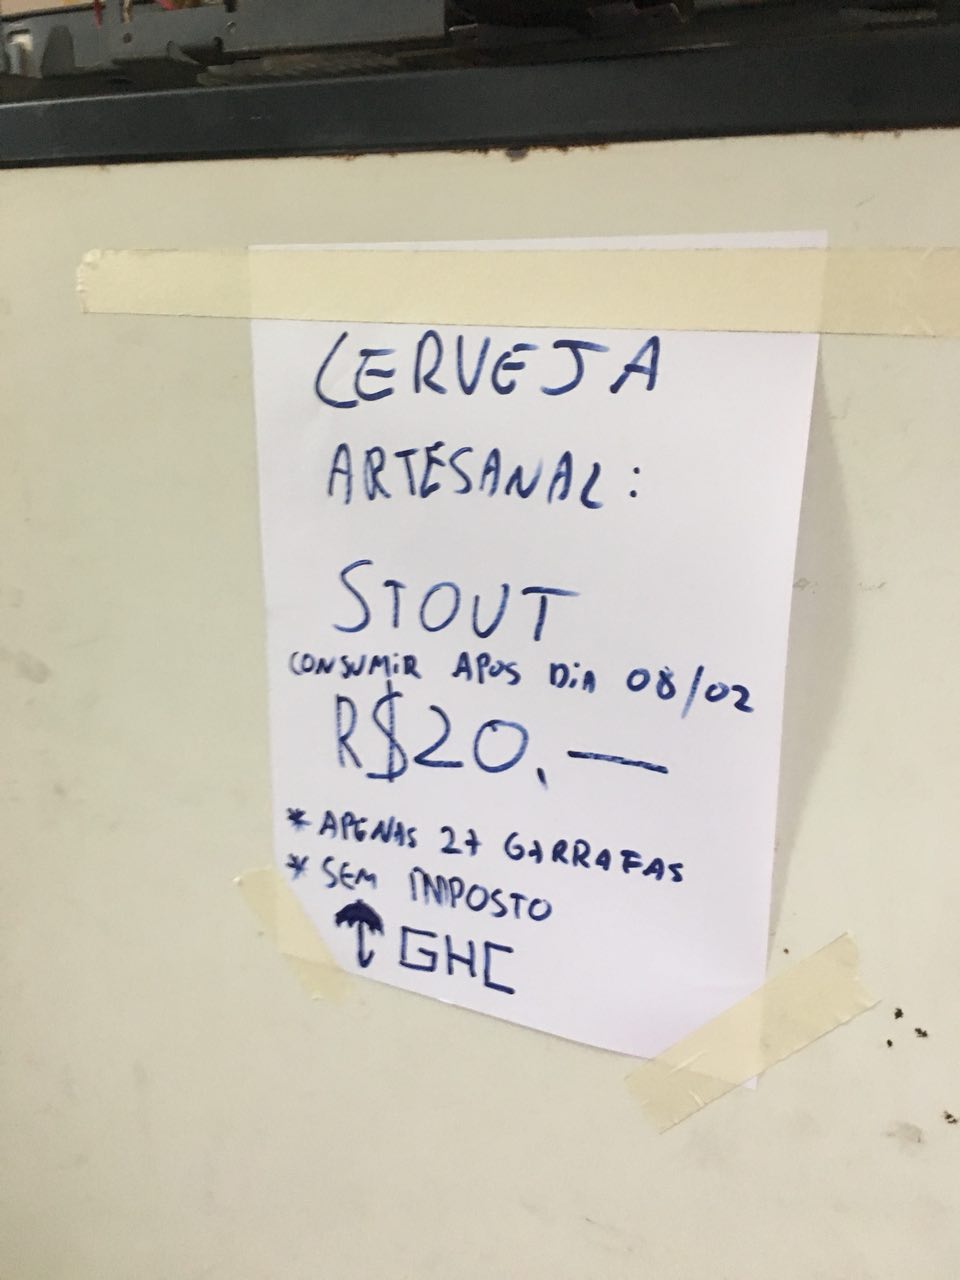 CERVEJA
ARTESANAL:
STOUT
CONSUMIR APOS DIA 08/02
R$20,—
* APENAS 27 GARRAFAS
* SEM IMPOSTO
GHC